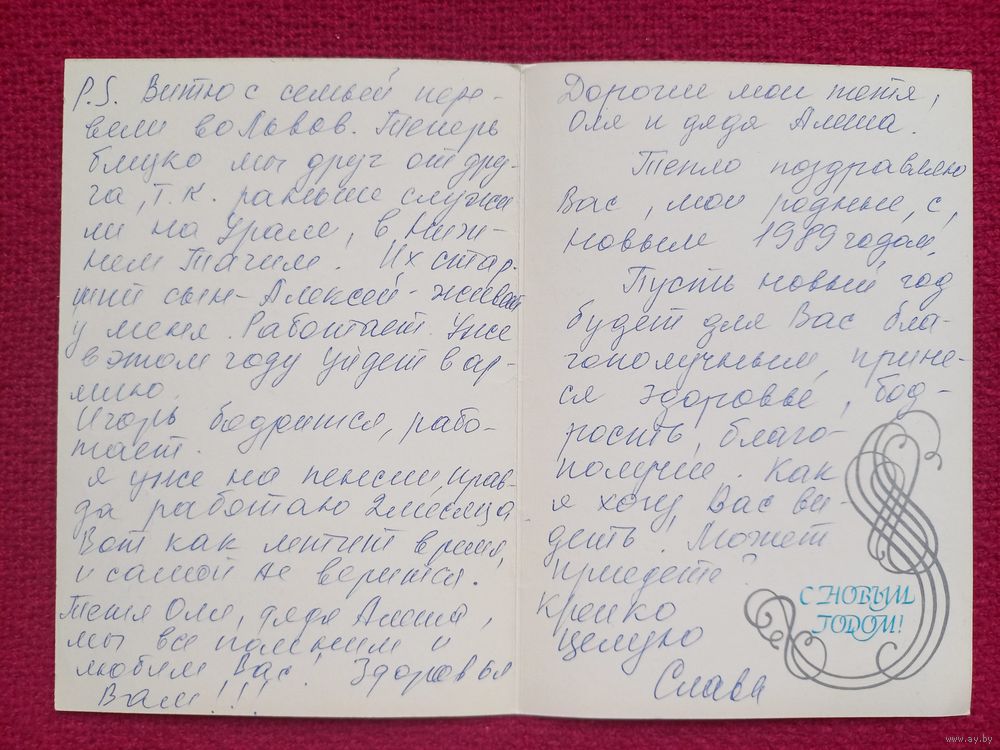 P.S. Витю с семьёй пере-
вели во Львов. Теперь
близко мы друг от дру-
га, т.к. раньше служи-
ли на Урале, в Ниж-
нем Тагиле. Их стар-
ший сын - Алексей - живёт
у меня. Работает. Уже
в этом году уйдет в ар-
мию.
Игорь бодрится, рабо-
тает.
Я уже на пенсии, прав-
да работаю 2 месяца.
Вот как летит время,
и самой не верится.
Тетя Оля, дядя Алеша,
мы все помним и
любим Вас! Здоровья
Вам!!!
Дорогие мои тетя,
Оля и дядя Алеша.
Тепло поздравляю
Вас, мои родные, с,
новым 1989 годом.
Пусть новый год
будет для Вас бла-
гополучным, прине-
ся здоровье, бод-
рость, благо-
получие. Как
я хочу Вас ви-
деть! Может
приедете?
Крепко
целую
Слава
С НОВЫМ
ГОДОМ!
www.ay.by